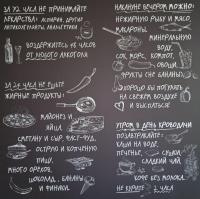 ЗА 72 ЧАСА НЕ ПРИНИМАЙТЕ
ЛЕКАРСТВА: АСПИРИН, ДРУГИЕ
АНТИКОАГУЛЯНТЫ, АНАЛЬГЕТИКИ
ВОЗДЕРЖИТЕСЬ 48 ЧАСОВ
ОТ ЛЮБОГО АЛКОГОЛЯ
ЗА 24 ЧАСА НЕ ЕШЬТЕ
ЖИРНЫЕ ПРОДУКТЫ:
МАЙОНЕЗ И
ЯЙЦА,
СМЕТАНУ И СЫР, ФАСТ-ФУД,
ОСТРУЮ И КОПЧЕНУЮ
ПИЩУ,
МНОГО ОРЕХОВ,
ШОКОЛАД, БАНАНЫ
И ФИНИКИ.
НАКАНУНЕ ВЕЧЕРОМ МОЖНО:
НЕЖИРНУЮ РЫБУ И МЯСО,
МАКАРОНЫ,
МИНЕРАЛЬНУЮ
ВОДУ,
СОК, МОРС, КОМПОТ,
ОВОЩИ,
ФРУКТЫ (НЕ БАНАНЫ)
ХОРОШО БЫ ПОГУЛЯТЬ
НА СВЕЖЕМ ВОЗДУХЕ
И ВЫСПАТЬСЯ
УТРОМ В ДЕНЬ КРОВОДАЧИ
ПОЗАВТРАКАЙТЕ:
КАША НА ВОДЕ,
ПЕЧЕНЬЕ, СУШКИ,
СЛАДКИЙ
ЧАЙ
КОФЕ БЕЗ МОЛОКА.
НЕ КУРИТЕ 2 ЧАСА